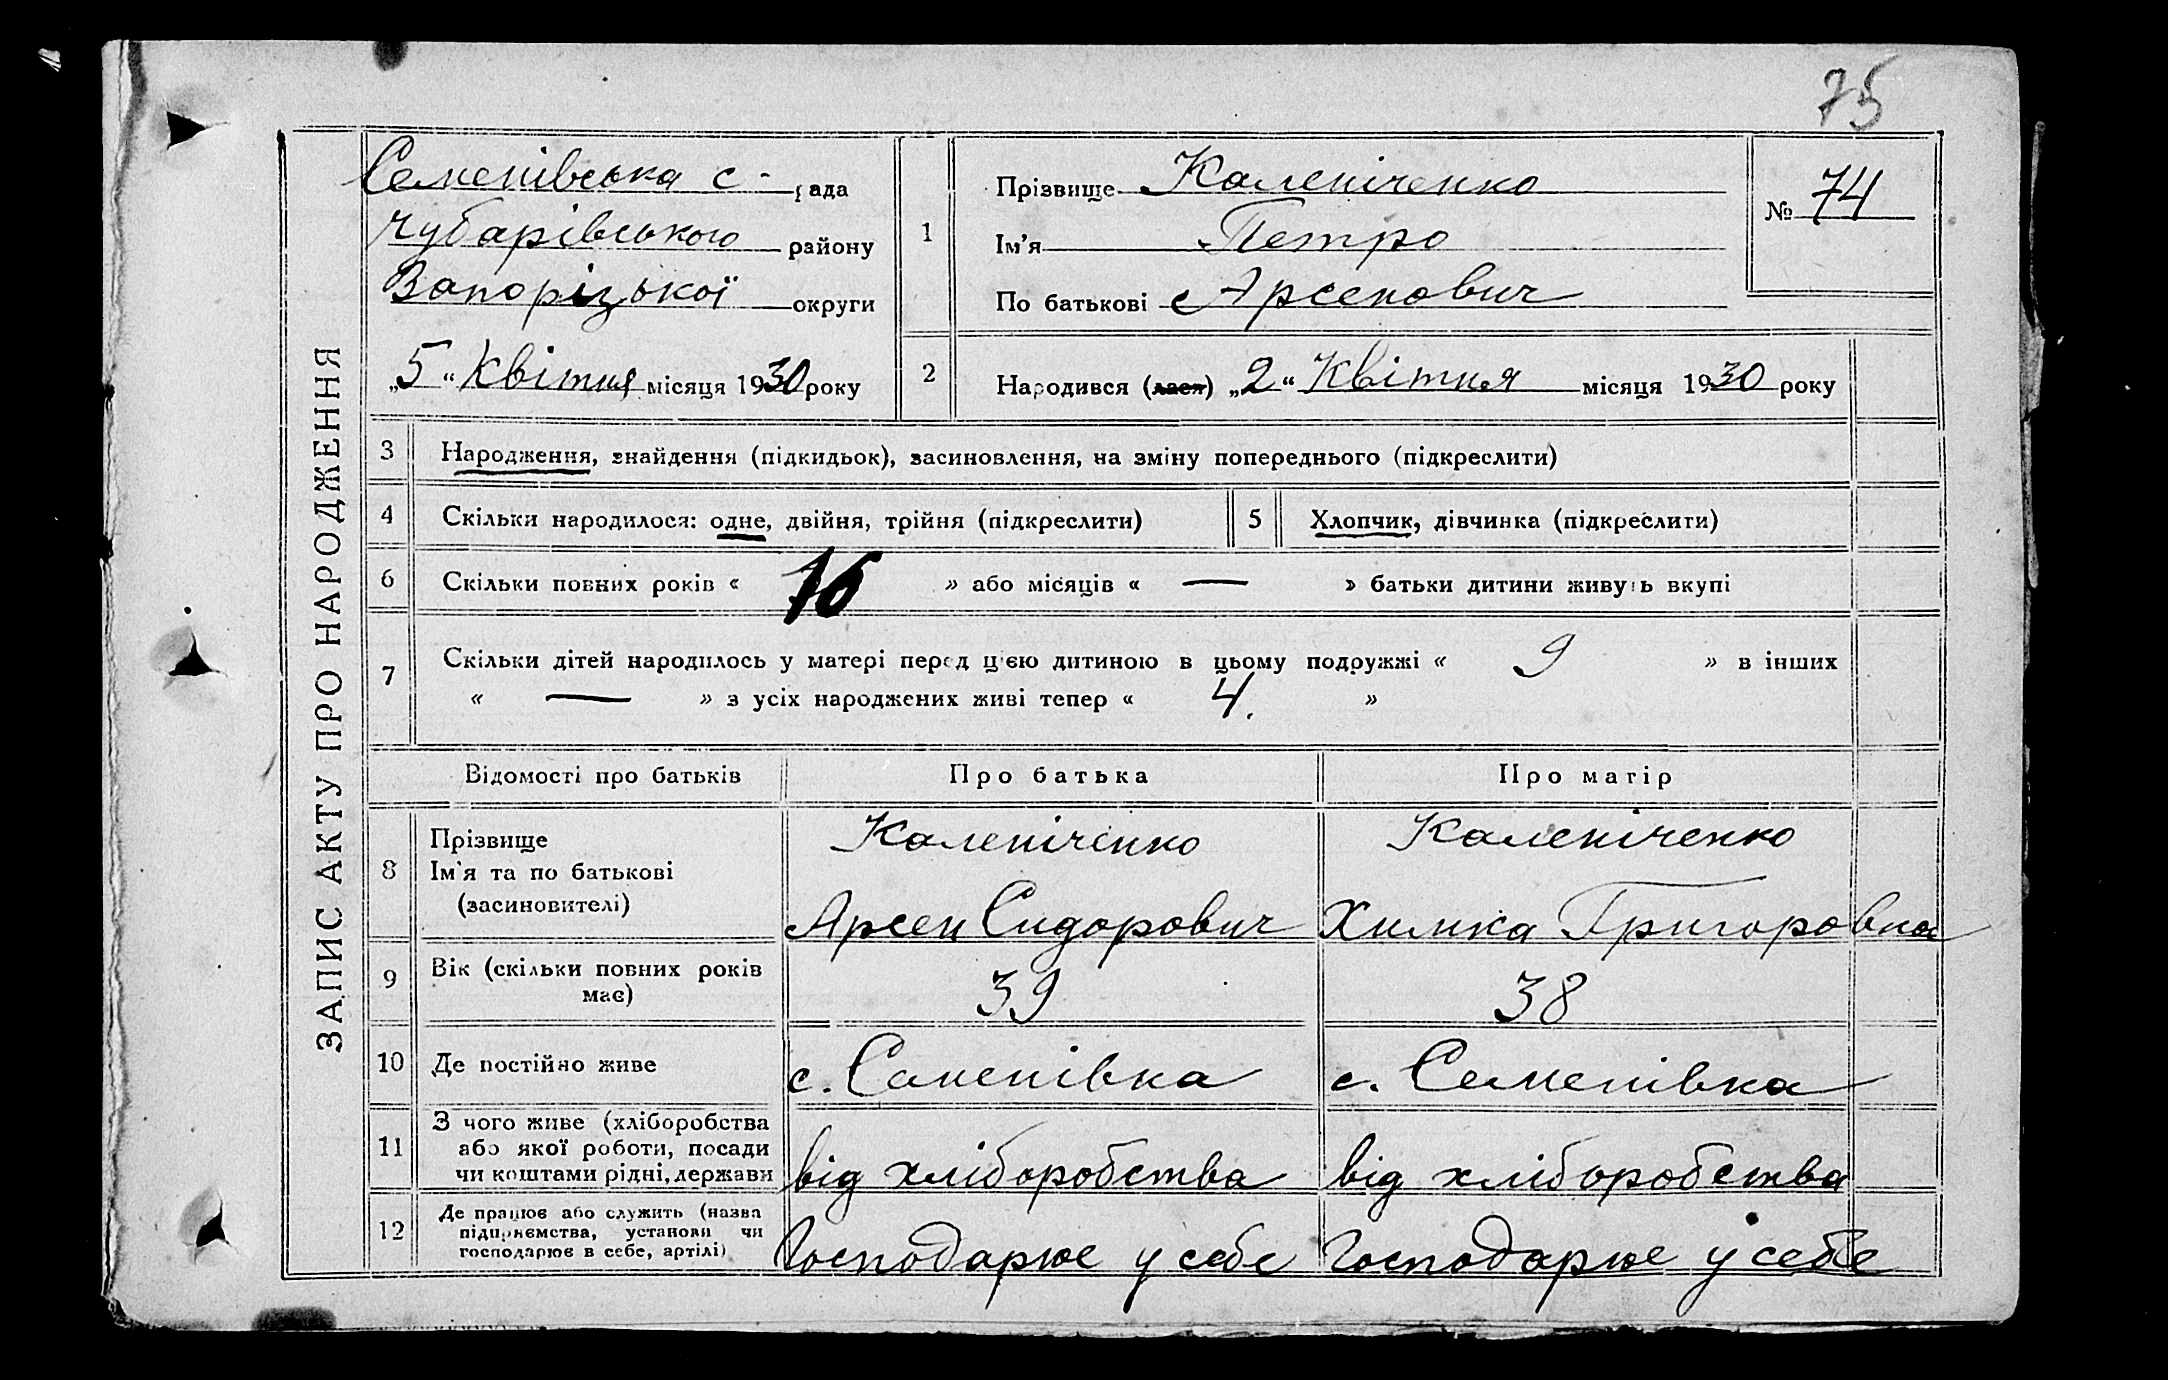 75
ЗАПИС АКТУ ПРО НАРОДЖЕННЯ
Семенівська с - рада
Чубарівського району
Запорізької округи
„5“ Квітня місяця 1930 року
1
Прізвище Каленіченко
Ім’я Петро
По батькові Арсенович
№ 74
2
Народився (лася) „2“ Квітня місяця 1930 року
3 Народження, знайдення (підкидьок), засиновлення, на зміну попереднього (підкреслити)
4 Скільки народилося: одне, двійня, трійня (підкреслити)
5 Хлопчик, дівчинка (підкреслити)
6 Скільки повних років « 16 » або місяців « — » батьки дитини живуть вкупі
7 Скільки дітей народилось у матері перед цією дитиною в цьому подружжі « 9 » в інших
« — » з усіх народжених живі тепер « 4. »
Відомості про батьків Про батька Про матір
8
Прізвище
Ім’я та по батькові
(засиновителі)
Каленіченко
Арсен Сидорович
Каленіченко
Химка Григоровна
9
Вік (скільки повних років
має)
39
38
10 Де постійно живе
с. Семенівка
с. Семенівка
11
З чого живе (хліборобства
або якої роботи, посади
чи коштами рідні, держави
від хліборобства
від хліборобства
12
Де працює або служить (назва
підприємства, установи чи
господарює в себе, артілі)
Господарює у себе
Господарює у себе